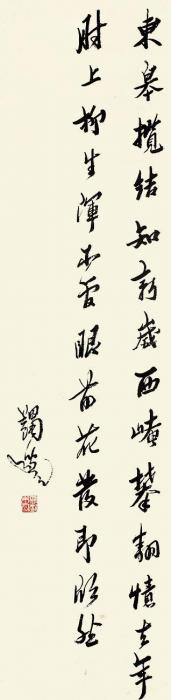 東皋攬結知新歲西崦攀翻憶去年
肘上柳生渾不管眼前花發即欣然